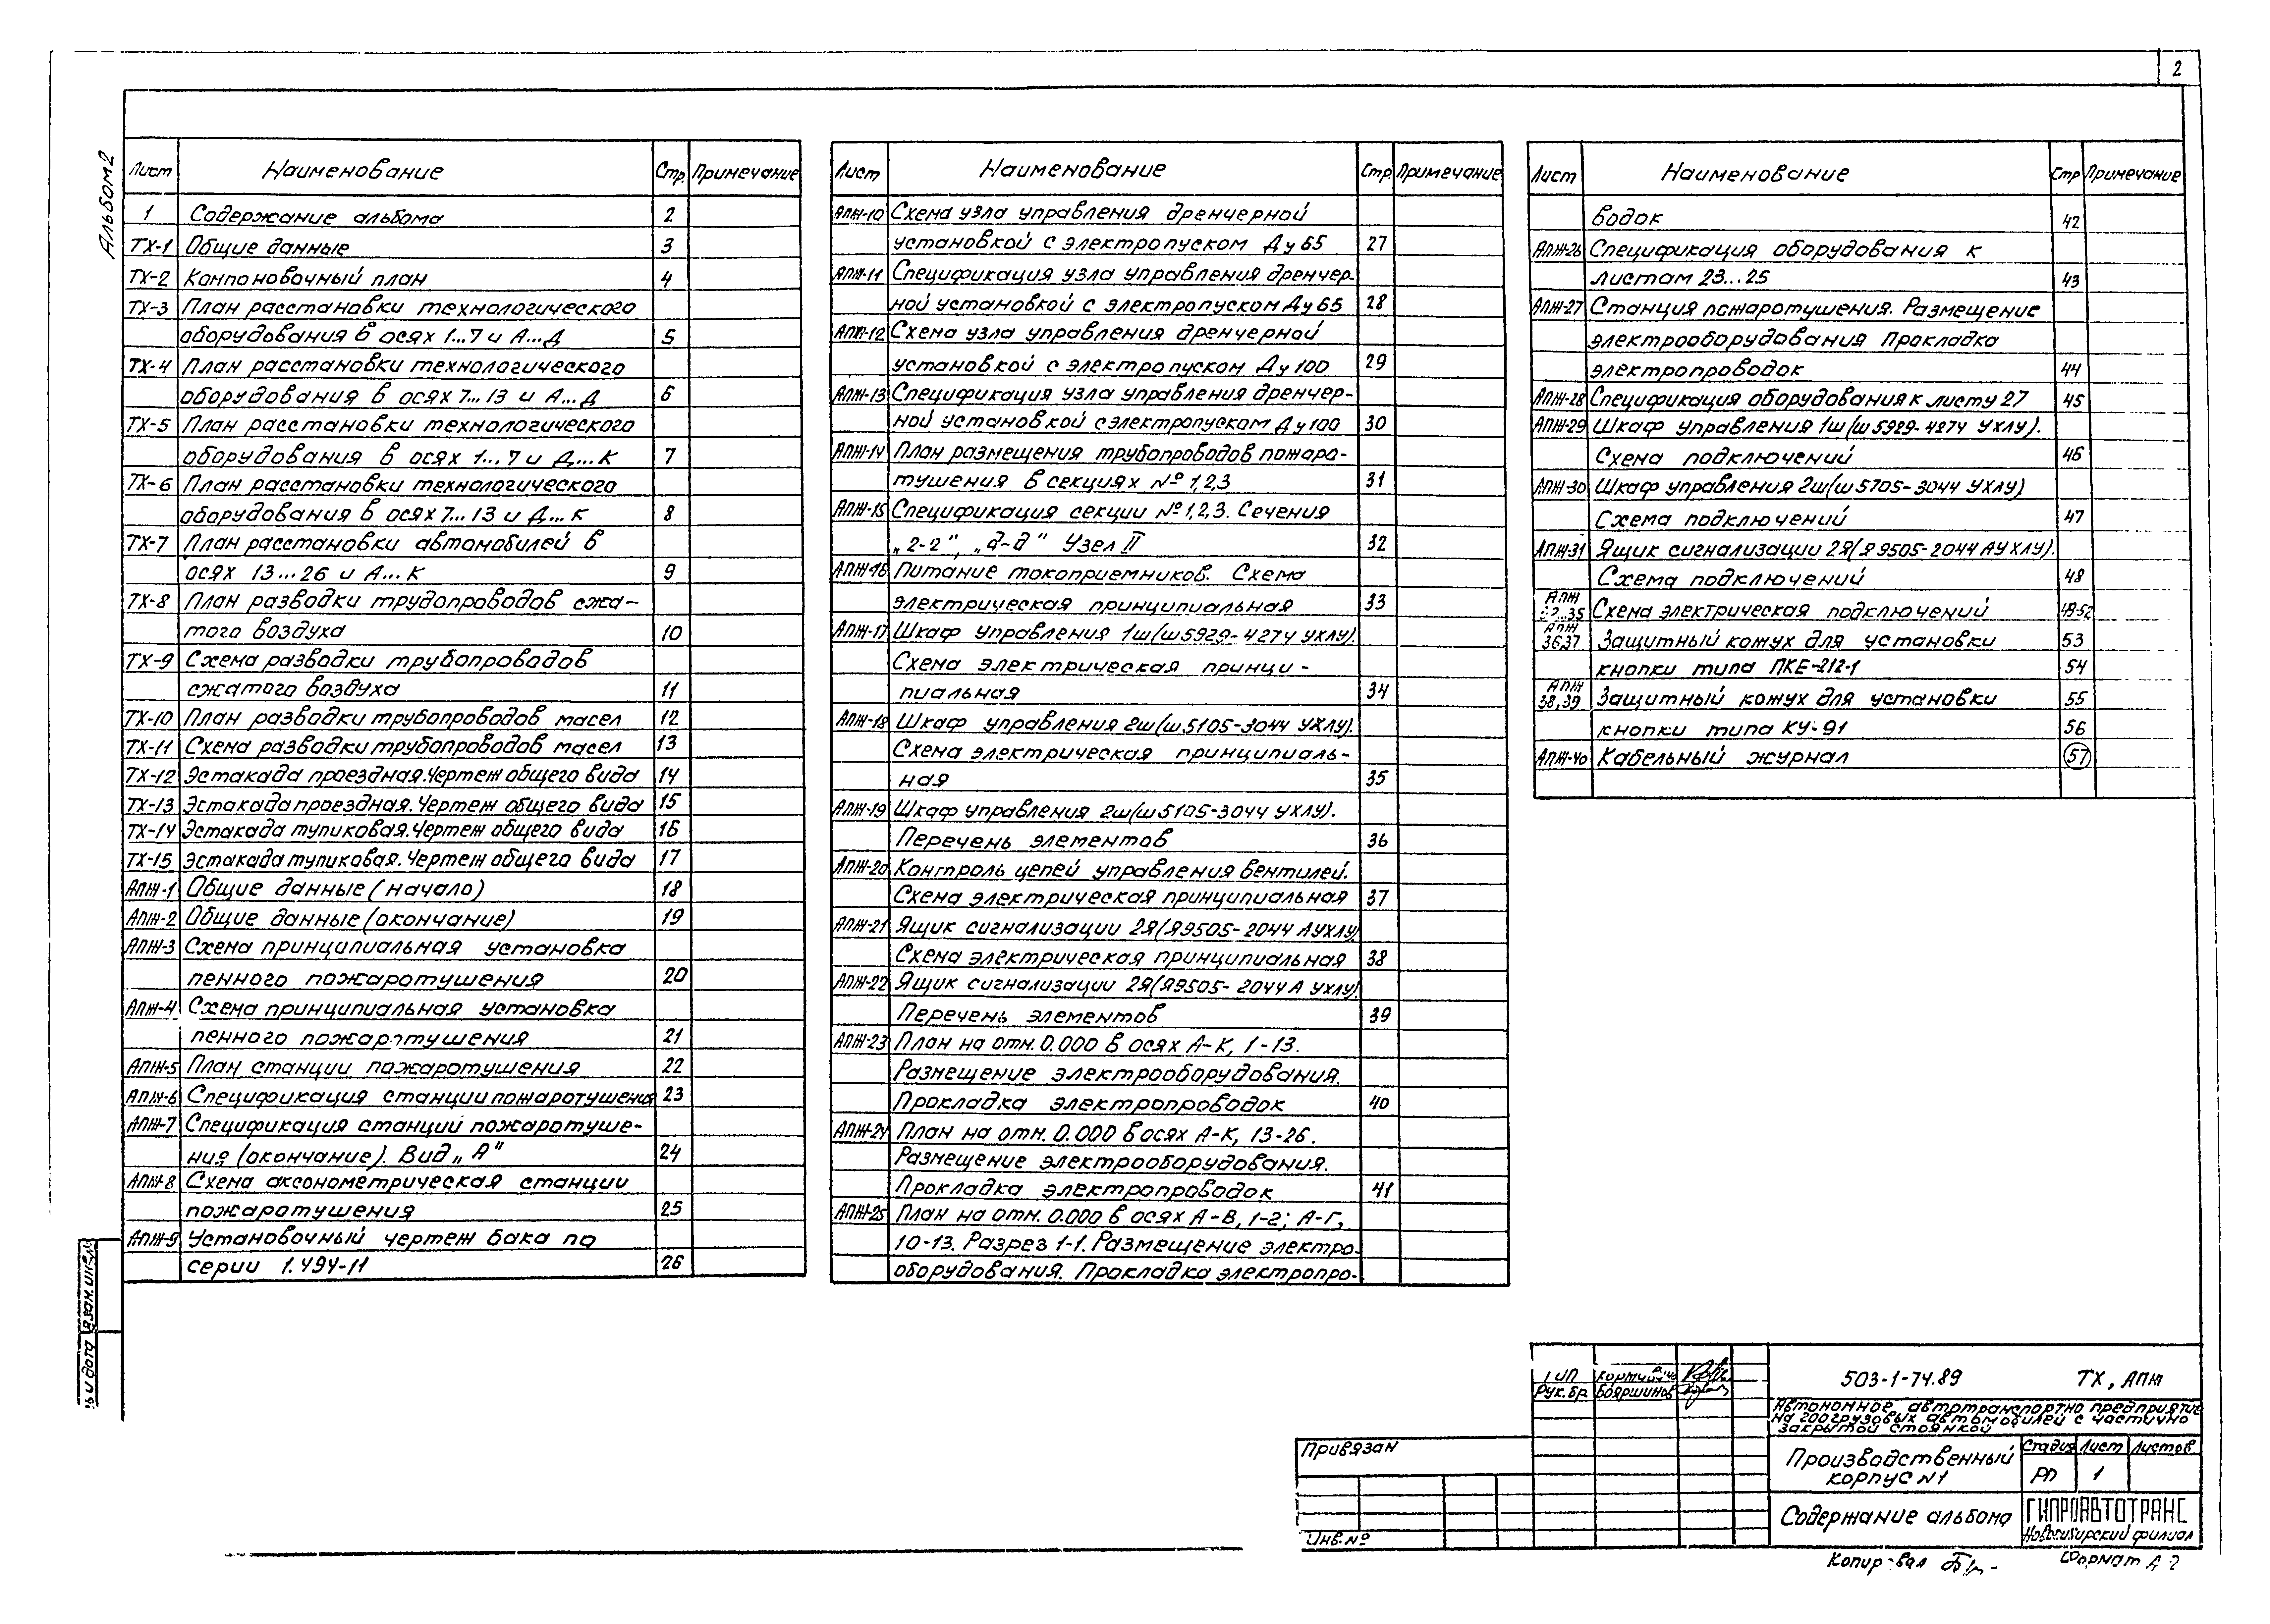 2
Альбом 2
Лист Наименование Стр. Примечание
1 Содержание альбома 2
ТХ-1 Общие данные 3
ТХ-2 Компоновочный план 4
ТХ-3 План расстановки технологического
оборудования в осях 1...7 и А...Д 5
ТХ-4 План расстановки технологического
оборудования в осях 7...13 и А...Д 6
ТХ-5 План расстановки технологического
оборудования в осях 1...7 и Д...К 7
ТХ-6 План расстановки технологического
оборудования в осях 7...13 и Д...К 8
ТХ-7 План расстановки автомобилей в
осях 13...26 и А...К 9
ТХ-8 План разводки трубопроводов сжа-
того воздуха 10
ТХ-9 Схема разводки трубопроводов
сжатого воздуха 11
ТХ-10 План разводки трубопроводов масел 12
ТХ-11 Схема разводки трубопроводов масел 13
ТХ-12 Эстакада проездная. Чертеж общего вида 14
ТХ-13 Эстакада проездная. Чертеж общего вида 15
ТХ-14 Эстакада тупиковая. Чертеж общего вида 16
ТХ-15 Эстакада тупиковая. Чертеж общего вида 17
АПЖ-1 Общие данные (начало) 18
АПЖ-2 Общие данные (окончание) 19
АПЖ-3 Схема принципиальная установка
пенного пожаротушения 20
АПЖ-4 Схема принципиальная установка
пенного пожаротушения 21
АПЖ-5 План станции пожаротушения 22
АПЖ-6 Спецификация станции пожаротушения 23
АПЖ-7 Спецификация станции пожаротуше-
ния (окончание). Вид „А" 24
АПЖ-8 Схема аксонометрическая станции
пожаротушения 25
АПЖ-9 Установочный чертеж бака по
серии 1.494-11 26
Лист Наименование Стр. Примечание
АПЖ-10 Схема узла управления дренчерной
установкой с электропуском Ду 65 27
АПЖ-11 Спецификация узла управления дренчер-
ной установкой с электропуском Ду 65 28
АПЖ-12 Схема узла управления дренчерной
установкой с электропуском Ду 100 29
АПЖ-13 Спецификация узла управления дренчер-
ной установкой с электропуском Ду 100 30
АПЖ-14 План размещения трубопроводов пожаро-
тушения в секциях № 1,2,3 31
АПЖ-15 Спецификация секции № 1,2,3. Сечения
„2-2", „д-д" Узел II 32
АПЖ-16 Питание токоприемников. Схема
электрическая принципиальная 33
АПЖ-17 Шкаф управления 1ш(ш5929-4274 УХЛУ).
Схема электрическая принци-
пиальная 34
АПЖ-18 Шкаф управления 2ш(ш5105-3044 УХЛУ).
Схема электрическая принципиаль-
ная 35
АПЖ-19 Шкаф управления 2ш(ш5105-3044 УХЛУ).
Перечень элементов 36
АПЖ-20 Контроль цепей управления вентилей.
Схема электрическая принципиальная 37
АПЖ-21 Ящик сигнализации 2Я(Я9505-2044 АУХЛУ)
Схема электрическая принципиальная 38
АПЖ-22 Ящик сигнализации 2Я(Я9505-2044А УХЛУ).
Перечень элементов 39
АПЖ-23 План на отм. 0.000 в осях А-К, 1-13.
Размещение электрооборудования.
Прокладка электропроводок 40
АПЖ-24 План на отм. 0.000 в осях А-К, 13-26.
Размещение электрооборудования.
Прокладка электропроводок 41
АПЖ-25 План на отм. 0.000 в осях А-В, 1-2; А-Г,
10-13. Разрез 1-1. Размещение электро-
оборудования. Прокладка электропро-
Лист Наименование Стр Примечание
водок 42
АПЖ-26 Спецификация оборудования к
листам 23...25 43
АПЖ-27 Станция пожаротушения. Размещение
электрооборудования Прокладка
электропроводок 44
АПЖ-28 Спецификация оборудования к листу 27 45
АПЖ-29 Шкаф управления 1ш(ш5929-4274 УХЛУ).
Схема подключений 46
АПЖ-30 Шкаф управления 2ш(ш5705-3044 УХЛУ)
Схема подключений 47
АПЖ-31 Ящик сигнализации 2Я(Я9505-2044 АУХЛУ).
Схема подключений 48
АПЖ 32...35 Схема электрическая подключений 49-52
АПЖ 36,37 Защитный кожух для установки 53
кнопки типа ПКЕ-212-1 54
АПЖ 38,39 Защитный кожух для установки 55
кнопки типа КУ-91 56
АПЖ-40 Кабельный журнал 57
взам. инв.
ь и дата
ГИП
Рук.бр. Бояршинов
503-1-74.89 ТХ, АПЖ
Автономное автотранспортно предприятие
на 200 грузовых автомобилей с частично
закрытой стоянкой
Привязан
Инв.№
Производственный
корпус №1
Стадия Лист Листов
РП 1
Содержание альбома
ГИПРОАВТОТРАНС
Новосибирский филиал
Копировал
Формат А2